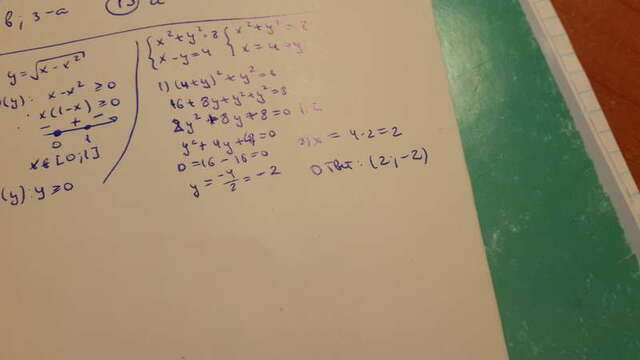 б ; 3-а
y = √x-x²
(y): x-x² ≥ 0
x(1-x) ≥ 0
- + -
0 1
x∈[0;1]
(y): y ≥ 0
{x²+y²=8 {x²+y²=8
{x-y=4 {x=4+y
1) (4+y)²+y²=8
16+8y+y²+y²=8
2y²+8y+8=0 |:2
y²+4y+4=0
D=16-16=0
y = -4/2 = -2
2) x = 4-2=2
Ответ: (2;-2)